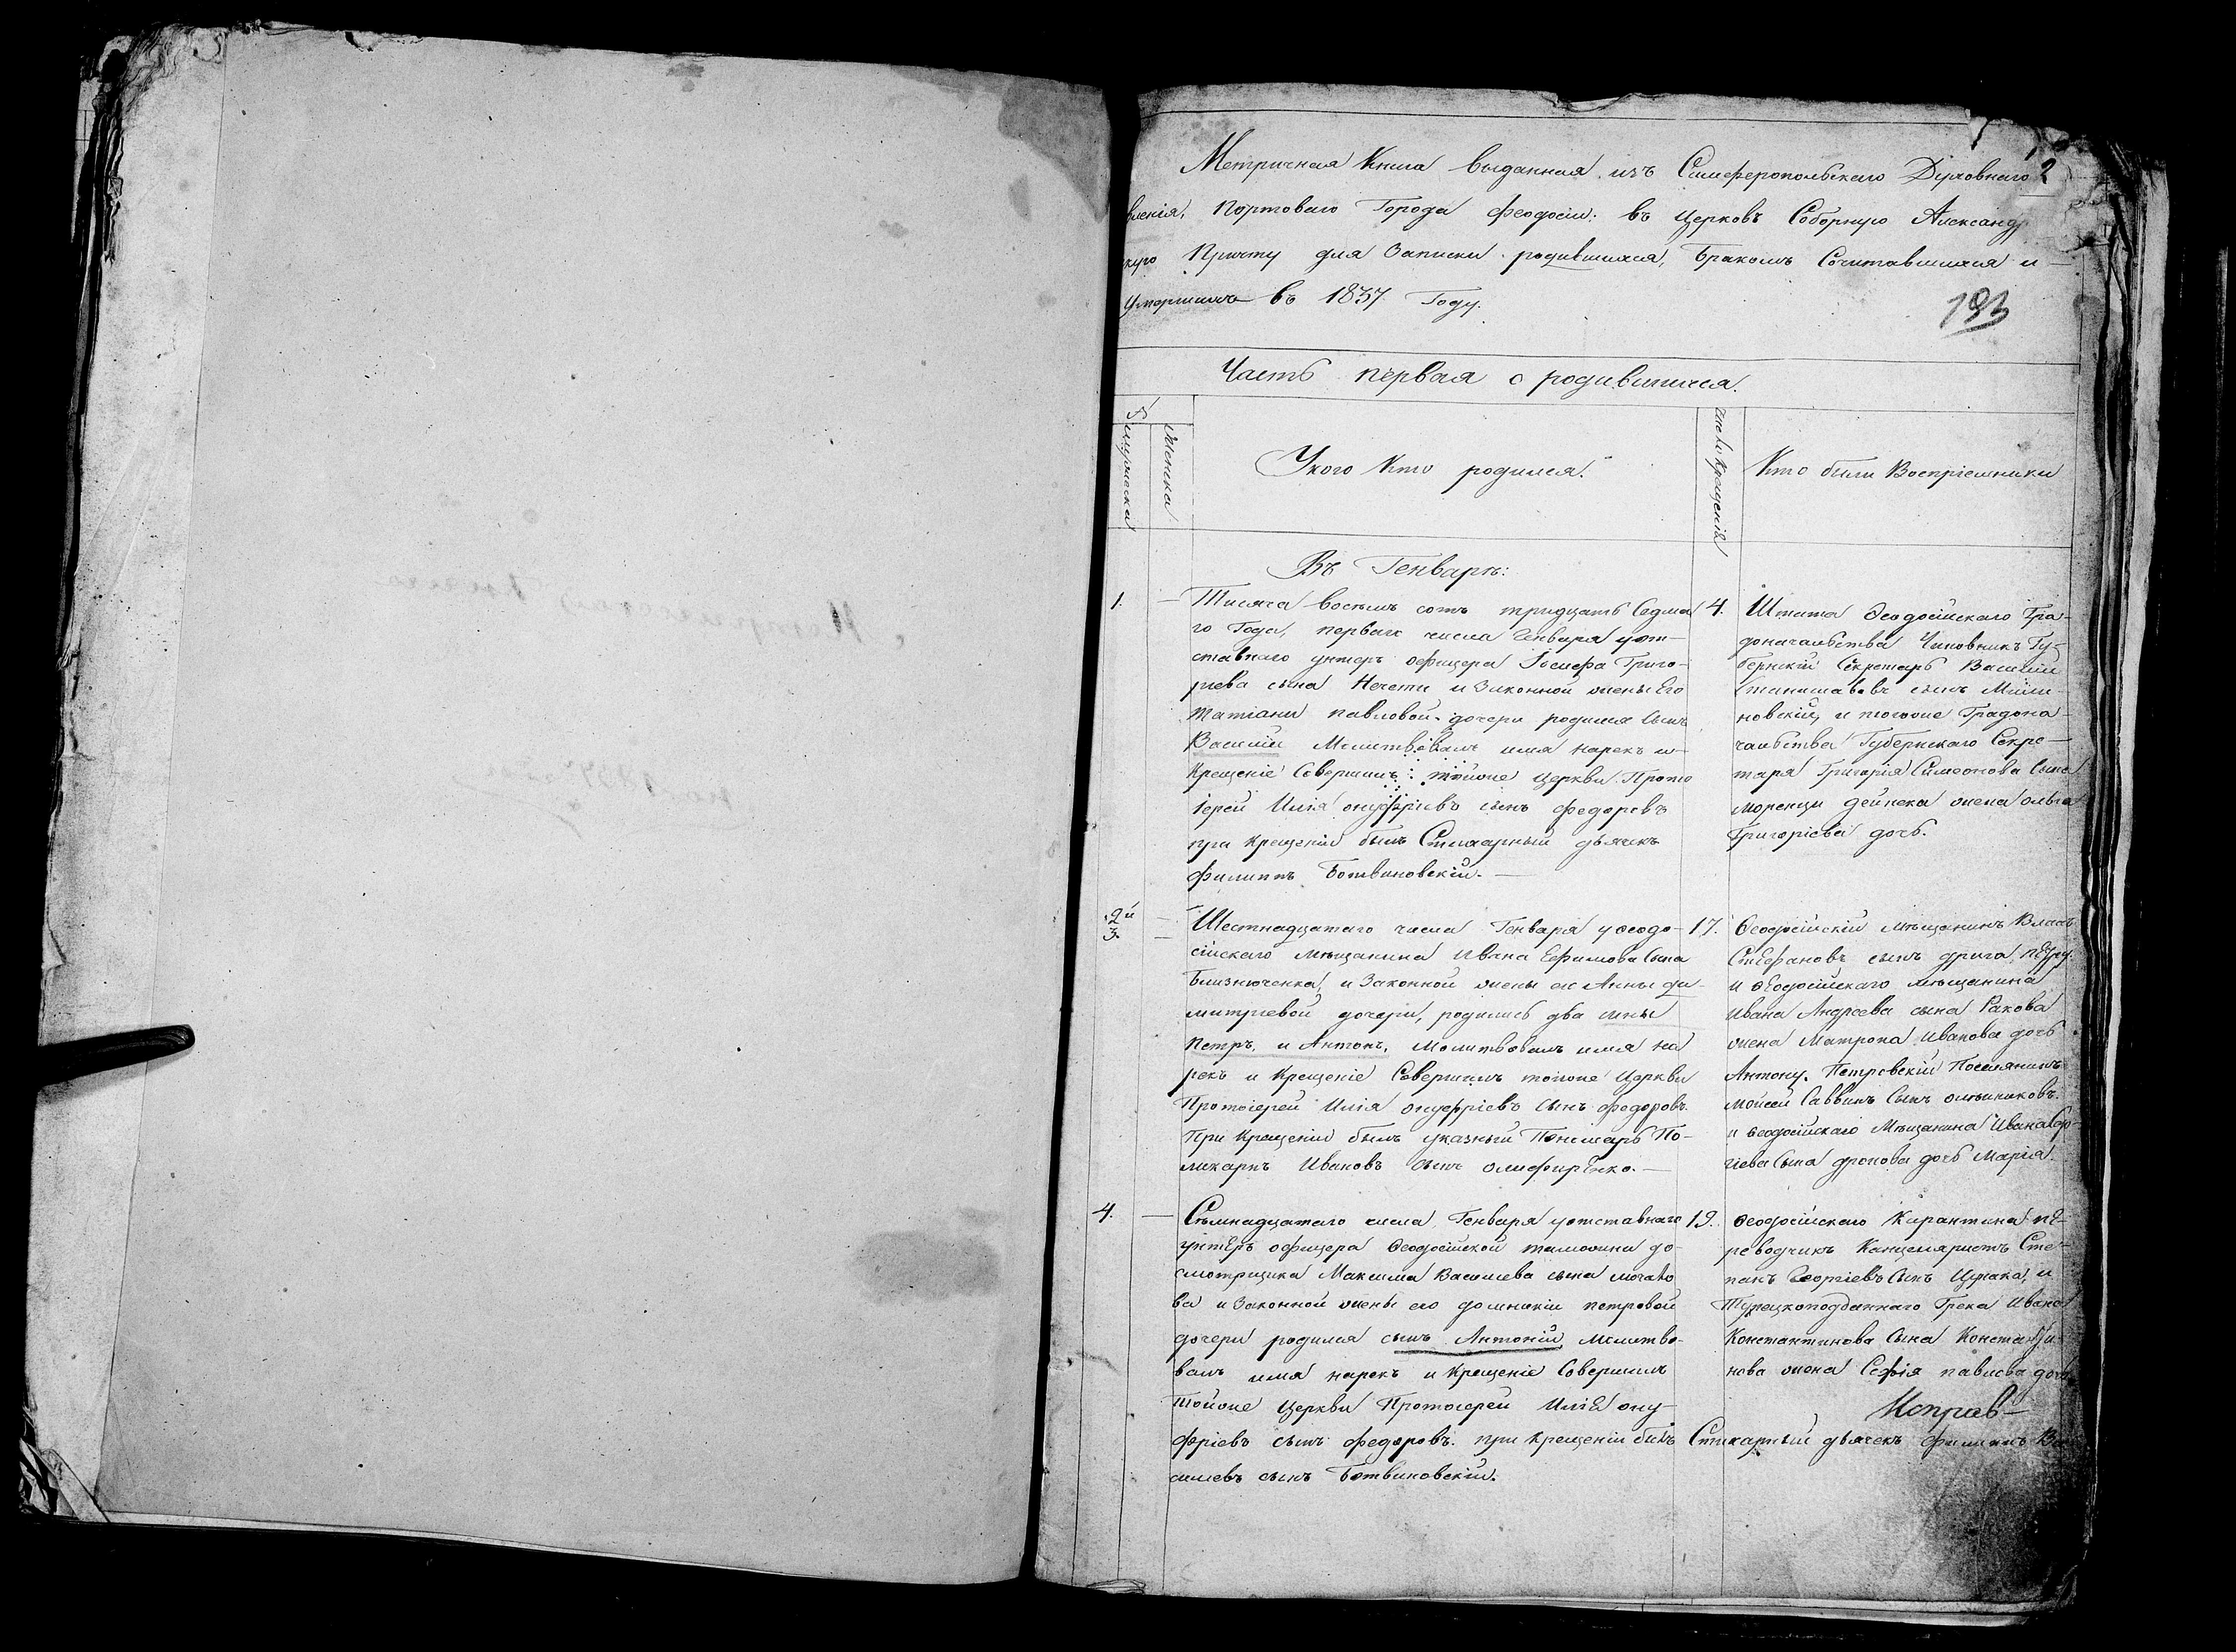 2
Метричная Книга выданная изъ Симферопольскаго Духовнаго
вленія, Портоваго Города Феодосіи: въ церковь Соборную Александ
скую Причту для Записки родившихся, Бракомъ Сочитавшихся и
Умершихъ въ 1837 Году.
193
Часть первая о родившихся.
мужеска
женска
Укого Кто родился.
число Крещенія
Кто были Воспріемники
Въ Генварѣ:
1. — Тысяча восемь сотъ тридцать Седма
го Года, перваго числа Генваря уот-
ставнаго унтеръ офицера Іосифа Григо-
рьева сына Нечети и Законной жены Его
Татіаны павловой дочери родился сынъ
Василій Молитвовалъ имя нарекъ и
Крещеніе Совершилъ тойже Церкви Прото
іерей Илія онуфріевъ сынъ Федоровъ
при крещеніи былъ Стихарный дьячекъ
Филиппъ Ботвиновскій. —
4. Штата Феодосійскаго Гра-
доначальства Чиновникъ Гу-
бернскій Секретарь Василій
Станиславовъ сынъ
новскій, и тогоже Градона-
чальства Губернскаго Секре-
таря Григорія Симеонова Сына
дейнека жена ольга
Григоріева дочь.
2й
3. — Шестнадцатаго числа Генваря уфеодо-
сійскаго мѣщанина Ивана Ефимова Сына
Близнюченка, и Законной жены ег Анны ди-
митріевой дочери, родились два сына
Петръ, и Антонъ, Молитвовалъ имя на
рекъ и Крещеніе Совершилъ тойже Церкви
Протоіерей Илія онуфріевъ Сынъ Федоровъ.
При Крещеніи былъ указный Пономарь По-
ликарпъ Ивановъ Сынъ олифиренко. —
17. Феодосійскій мѣщанинъ Власъ
Стефановъ сынъ дрига петру
и феодосійскаго мѣщанина
Ивана Андреева сына Ракова
жена Матрона Иванова дочь
Антону. Петровскій Поселянинъ
Моисей Саввинъ Сынъ
и феодосійскаго Мѣщанина Ивана
гіева Сына дронова дочь Марія.
4. — Сѣмнадцатаго числа Генваря уотставнаго
унтеръ офицера Феодосійской таможни до-
смотрщика Максима Василева сына
ва и Законной жены его домникіи петровой
дочери родился сынъ Антоній, Молитво-
валъ имя нарекъ и Крещеніе Совершилъ
тойже церкви Протоіерей Илія ону-
фріевъ сынъ Федоровъ. при Крещеніи былъ Стихарный дьячекъ Филиппъ Ва
силевъ сынъ Ботвиновскій.
19. Феодосійскаго Карантина пе-
реводчикъ Канцеляристъ Сте-
панъ Георгіевъ Сынъ и
Турецкоподданнаго Грека Ивана
Константинова Сына Константи-
нова жена Софія павлова дочь